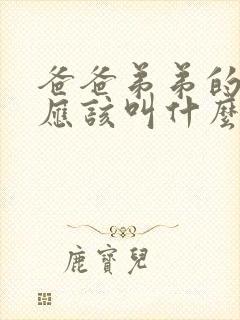 爸爸弟弟的
應該叫什麼
鹿寶兒